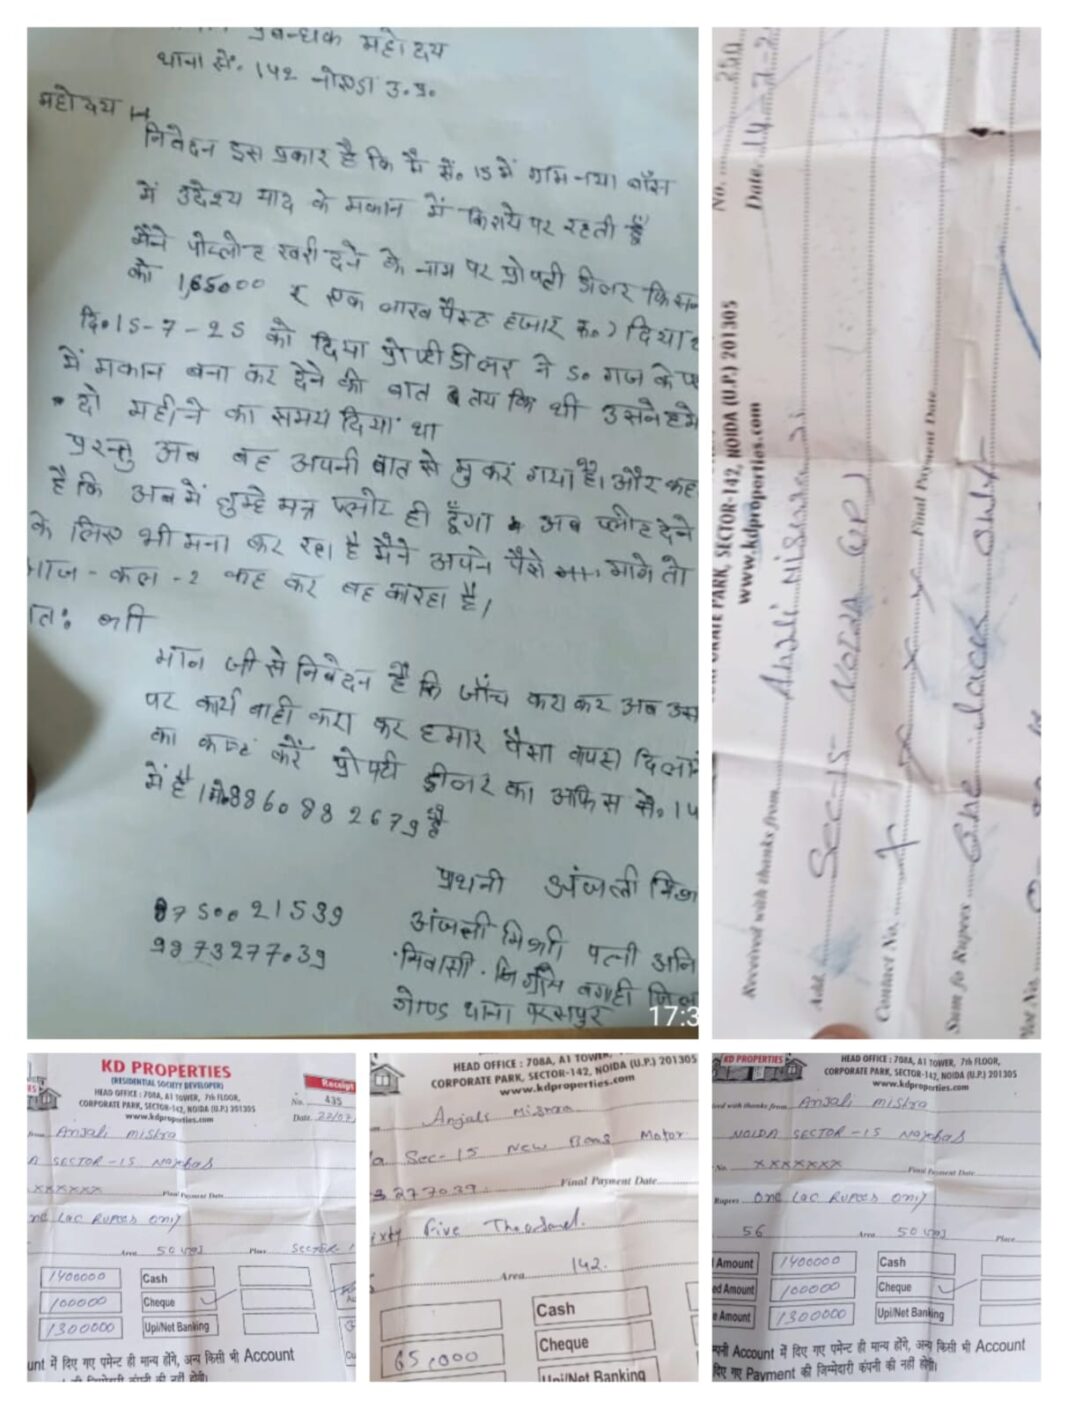 प्रबन्धक महोदय
थाना सै. 142 नोएडा उ.प्र.
महोदय
निवेदन इस प्रकार है कि मै सै. 15 में ग्राम नया बाँस
में उदेश्य याद के मकान में किराये पर रहती हूँ
मैंने पोल्लोट खरीदने के नाम पर प्रोपर्टी डीलर किसन
को 1,65000 ₹ एक लाख पैस्ट हजार रु.) दिया
दि. 15-7-25 को दिया प्रोप्टी डीलर ने 50 गज के
में मकान बना कर देने की बात तय कि थी उसने हमे
दो महीने का समय दिया था
परन्तु अब वह अपनी बात से मुकर गया है। और कह
है कि अब में तुम्हे मत्र प्लोट ही दूँगा अब प्लोट देने
के लिए भी मना कर रहा है मैंने अपने पैसे मागे तो
आज-कल-2 कह कर बह का रहा है।
अतः श्री
मान जी से निवेदन है कि जाँच करा कर अब उस
पर कार्य वाही करा कर हमार पैसा वापस दिलाने
का कष्ट करें प्रोपर्टी डीलर का आफिस सै. 14
में है। मो. 8860882679 है
प्रार्थनी अंजली मिश्रा
8750021539 अंजली मिश्रा पत्नी अनि
9973277039 निवासी ग्राम बगही जिला
गोण्डा थाना परसपुर
17:3
No. 250
Date 14-7-2
CORPORATE PARK, SECTOR-142, NOIDA (U.P.) 201305
www.kdproperties.com
Received with thanks from Anjali Mishra
Add. Sec-15 NOIDA UP
Contact No. X Final Payment Date
Sum fo Rupees One lacks only
KD PROPERTIES
(RESIDENTIAL SOCIETY DEVELOPER)
HEAD OFFICE : 708A, A1 TOWER, 7th FLOOR,
CORPORATE PARK, SECTOR-142, NOIDA (U.P.) 201305
www.kdproperties.com
Receipt
No. 435
Date 22/07
from Anjali mishra
A SECTOR-15 Nayabas
xxxxxx Final Payment Date
one Lac Rupees Only
Area 50 Place SECTOR-1
1400000 Cash
100000 Cheque
1300000 Upi/Net Banking
unt में दिए गए पमेन्ट ही मान्य होंगे, अन्य किसी भी Account
HEAD OFFICE : 708A, A1 TOWER,
CORPORATE PARK, SECTOR-142, NOIDA (U.P.) 201305
www.kdproperties.com
Anjali Mishraa
Sec-15 New Bans Motor
3277039 Final Payment Date
ixty five Thousand.
Area 142.
Cash
65,000 Cheque
Upi/Net Banking
KD PROPERTIES
HEAD OFFICE : 708A, A1 TOWER, 7th FLOOR,
CORPORATE PARK, SECTOR-142, NOIDA (U.P.) 201305
www.kdproperties.com
ved with thanks from Anjali mishra
NOIDA SECTOR-15 Nayabas
No. xxxxxxx Final Payment Date
Rupees One Lac Rupees Only
56 Area 50 Place
Amount 1400000 Cash
ed Amount 100000 Cheque
e Amount 1300000 Upi/Net Banking
पनी Account में दिए गए पमेन्ट ही मान्य होंगे, अन्य किसी भी Account
दिए गए Payment की जिम्मेदारी कंपनी की नहीं होगी।